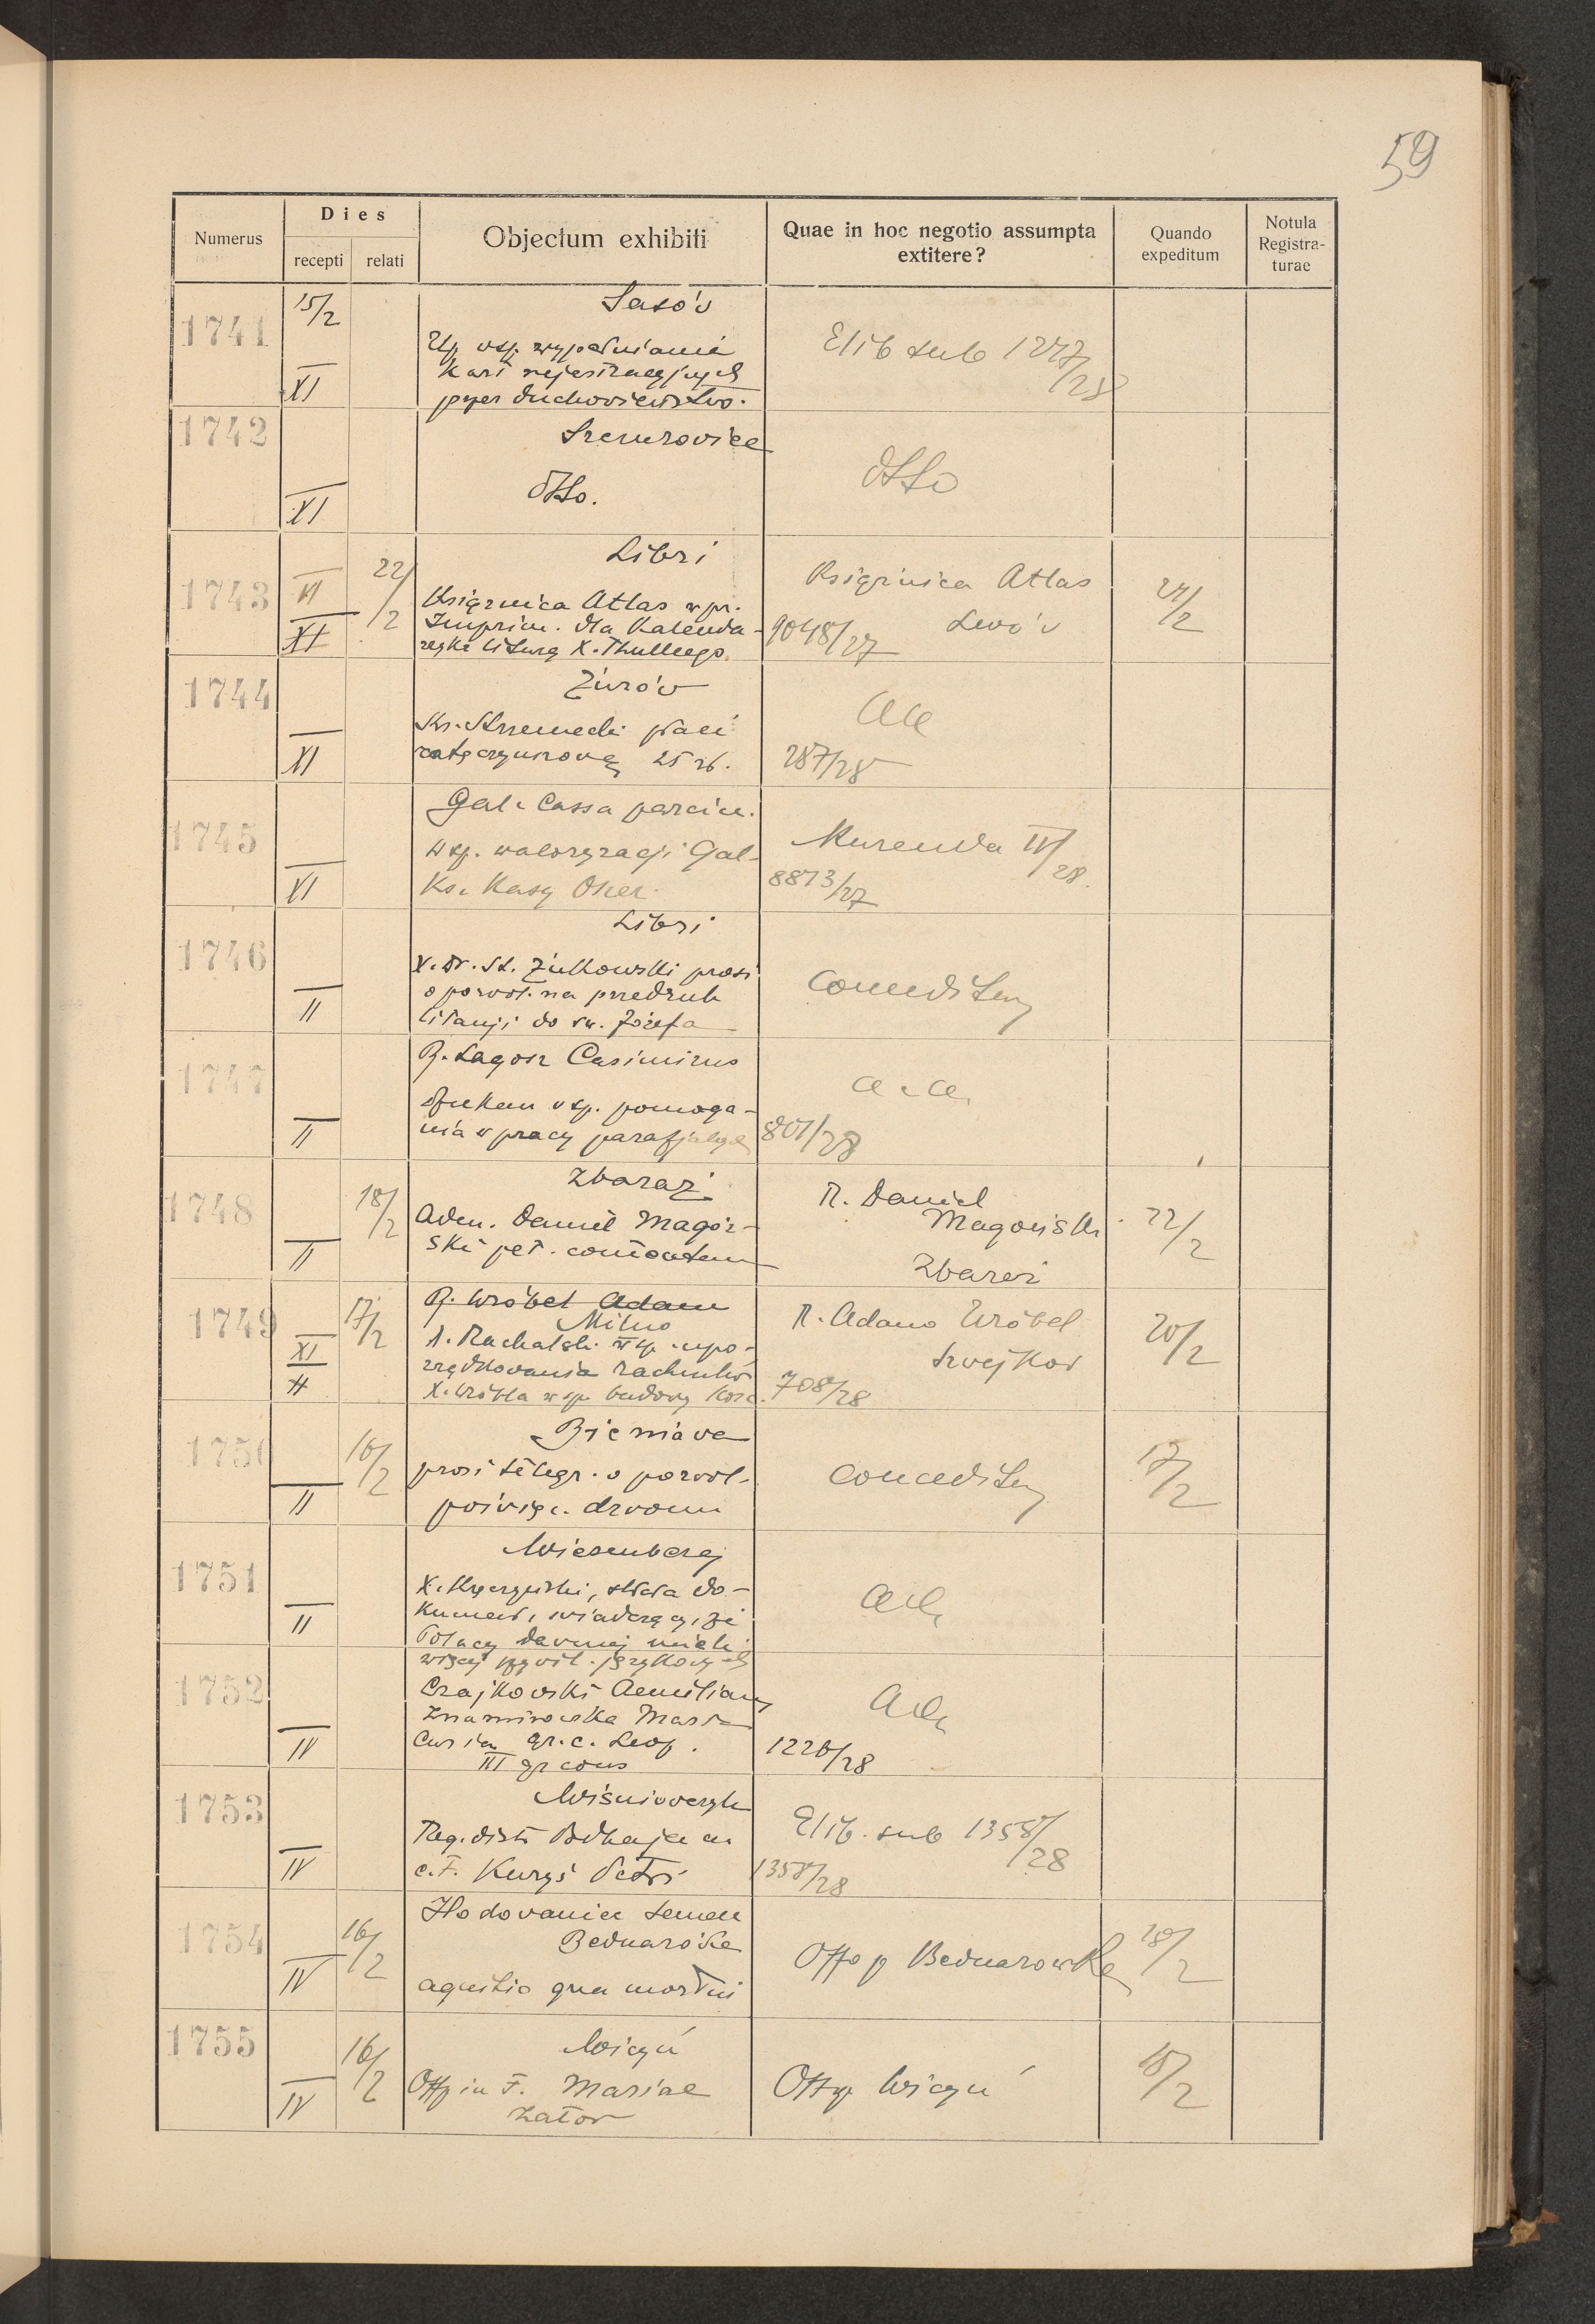 59
Numerus
Dies
recepti relati
Objectum exhibiti
Quae in hoc negotio assumpta
extitere?
Quando
expeditum
Notula
Registra-
turae
1741
15/2
XI
Sasów
wsp. wypełniania
kart rejestracyjnych
przez duchowieństwo.
Elib sub 1247/28
1742
XI
dtto.
dtto
1743
VI
XI
22/2
Libri
Książnica Atlas w pr.
Imprim. dla Kalenda-
rzyka liturg X. Thulliego
Książnica Atlas
Lwów
9048/27
24/2
1744
XI
Żurów
płaci
25 zł.
aa
287/28
1745
XI
Gal. Cassa
w sp. waloryzacji Gal.
Ks. Kasy Oszcz.
Kurenda IV/28.
8873/27
1746
II
Libri
X. Dr. St. Żukowski prosi
o pozwol. na przedruk
litanji do św. Józefa
Conceditur
1747
II
R. Lagosz Casimirus
wsp. pomaga-
nia w pracy parafjalnej
a.a.
801/28
1748
II
18/2
Zbaraż
Adm. Daniel Magoń-
ski pet.
R. Daniel
Magoński
Zbaraż
22/2
1749
XI
II
17/2
R. Wróbel Adam
Milno
R. Rachalski w sp. upo-
rządkowania rachunków
X. Wróbla w sp. budowy kośc.
R. Adamo Wróbel
Szwejków
708/28
20/2
1750
II
16/2
Bieniawa
prosi telegr. o pozwol.
poświęc. dzwonu
Conceditur
17/2
1751
II
Wiesenberg
dokument, świadczący, że
Polacy dawniej mieli
więcej językowych
aa
1752
IV
Czajkowski Aemilian
Znamirowska Maria
Curia gr. c. Leop.
III gr cons
aa
1226/28
1753
IV
Wiśniowczyk
c. F. Kuryś Petri
Elib. sub 1358/28
1358/28
1754
IV
16/2
Hodowanice
Bednarówka
agnitio qua mortui
Offo p Bednarówka
18/2
1755
IV
16/2
Wicyń
Offo in F. Mariae
Zator
Offo p Wicyń
18/2